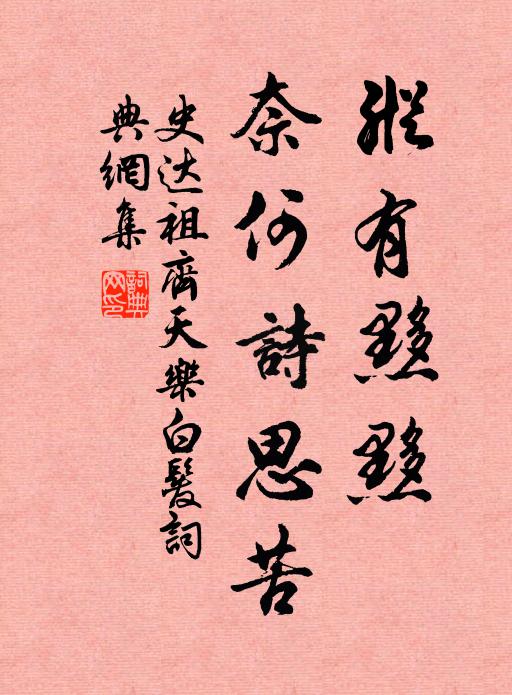 縱有黟黟
奈何詩思苦
史达祖齊天樂白髮詞
典網集
詞典網印